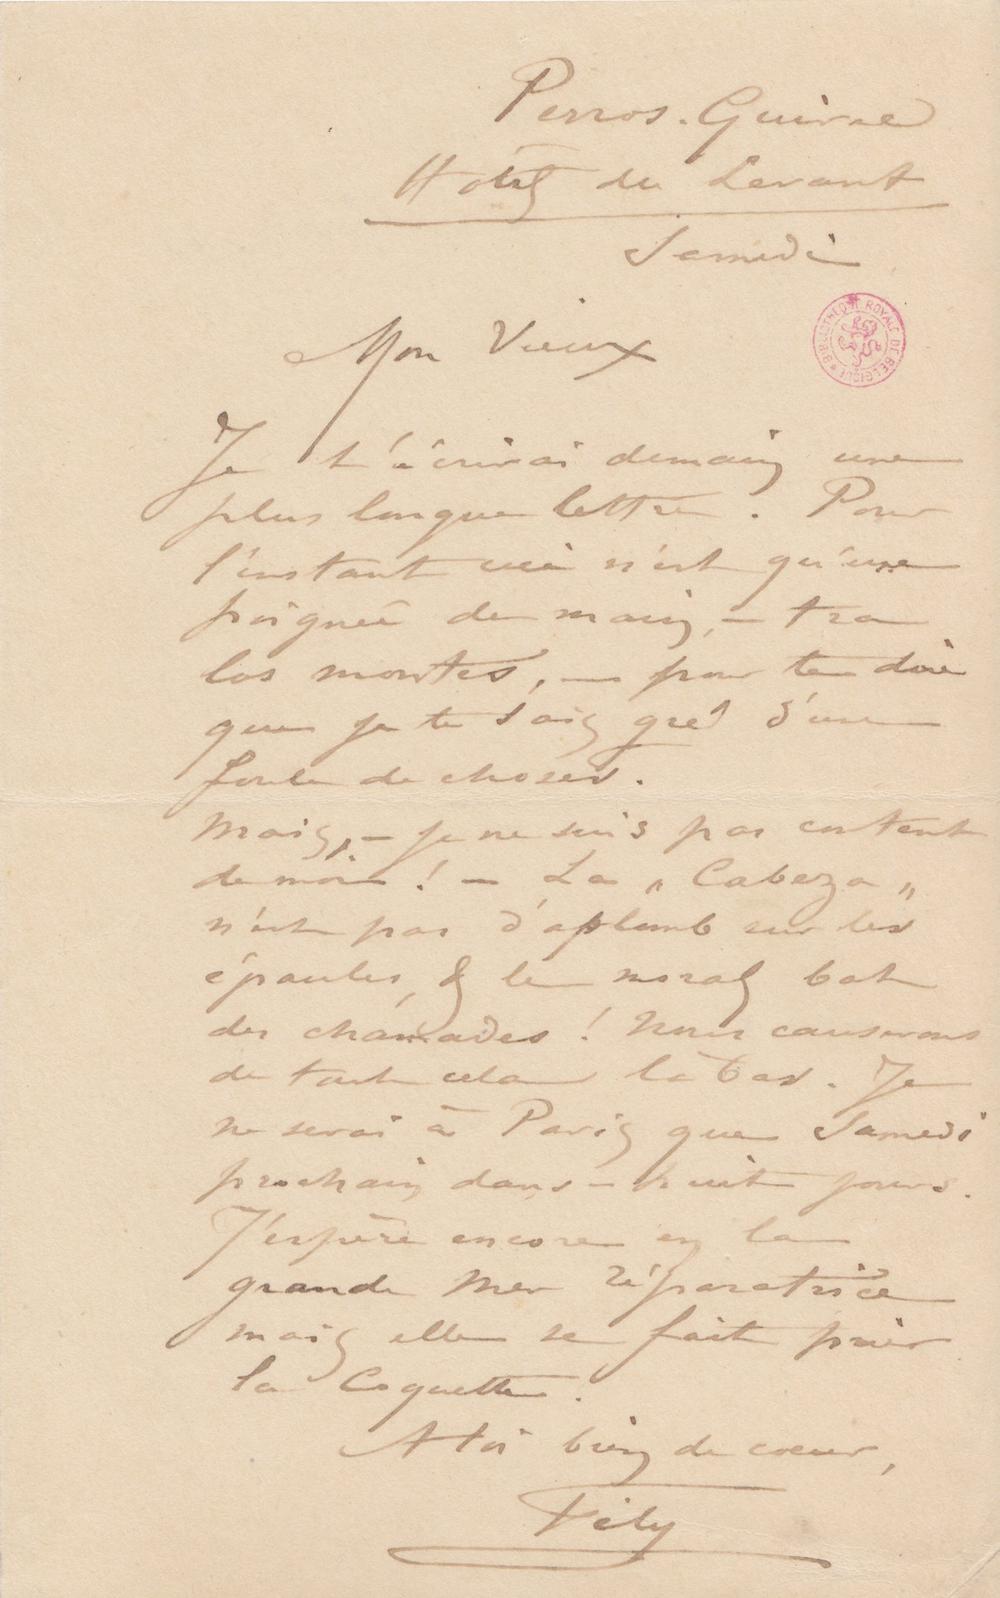 Perros-Guirec
Hôtel du Levant
Samedi
BIBLIOTHÈQUE ROYALE DE BELGIQUE
Mon Vieux
Je t'écrirai demain une
plus longue lettre. Pour
l'instant ceci n'est qu'une
poignée de main, – tra
los montes, – pour te dire
que je te sais gré d'une
foule de choses.
Mais, – je ne suis pas content
de moi ! – La „Cabeza„
n'est pas d'aplomb sur les
épaules, & le moral bat
des chamades ! Nous causerons
de tout cela là bas. Je
ne serai à Paris que Samedi
prochain dans – huit jours.
J'espère encore en la
grande Mer réparatrice
mais elle se fait prier
la Coquette.
A toi bien de coeur,
Fély